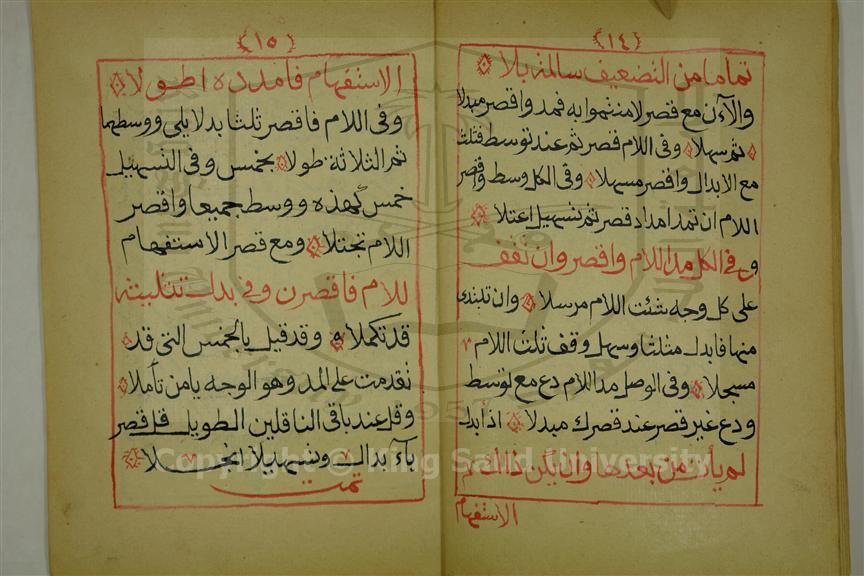 (١٤)
تماما من التضعيف سالمة بلا
والآن مع قصر لامنثموا به فمد واقصر مبدلا
ثم سهلا وفى اللام قصر ثم عند توسط فثلث
مع الابدال واقصر مسهلا وفى الكل وسط واقصر
اللام ان تمد امداد قصر ثم تسهيل اعتلا
وفى الكل مد اللام واقصر وان تقف
على كل وجه شئت اللام مرسلا وان تبتدى
منها فابدل مثلثا وسهل وقف ثلث اللام
مسجلا وفى الوصل مد اللام دع مع توسط
ودع غير قصر عند قصرك مبدلا اذا بدل
لم يأت من بعدها وان يكن ذاك
الاستفهام
(١٥)
الاستفهام فامدده اطولا
وفى اللام فاقصر ثلثا بدلا يلى ووسطهما
ثم الثلاثة طولا بخمس وفى التسهيل
خمس كهذه ووسط جميعا واقصر
اللام تجتلا ومع قصر الاستفهام
للام فاقصرن وفى بدل تثليثه
قد تكملا وقد قيل بالخمس التى قد
تقدمت على المد وهو الوجه يا من تأملا
وقل عند باقى الناقلين الطويل قل قصر
بآء بدال وتسهيلا انجلا
تمت
Copyright © King Saud University
1957